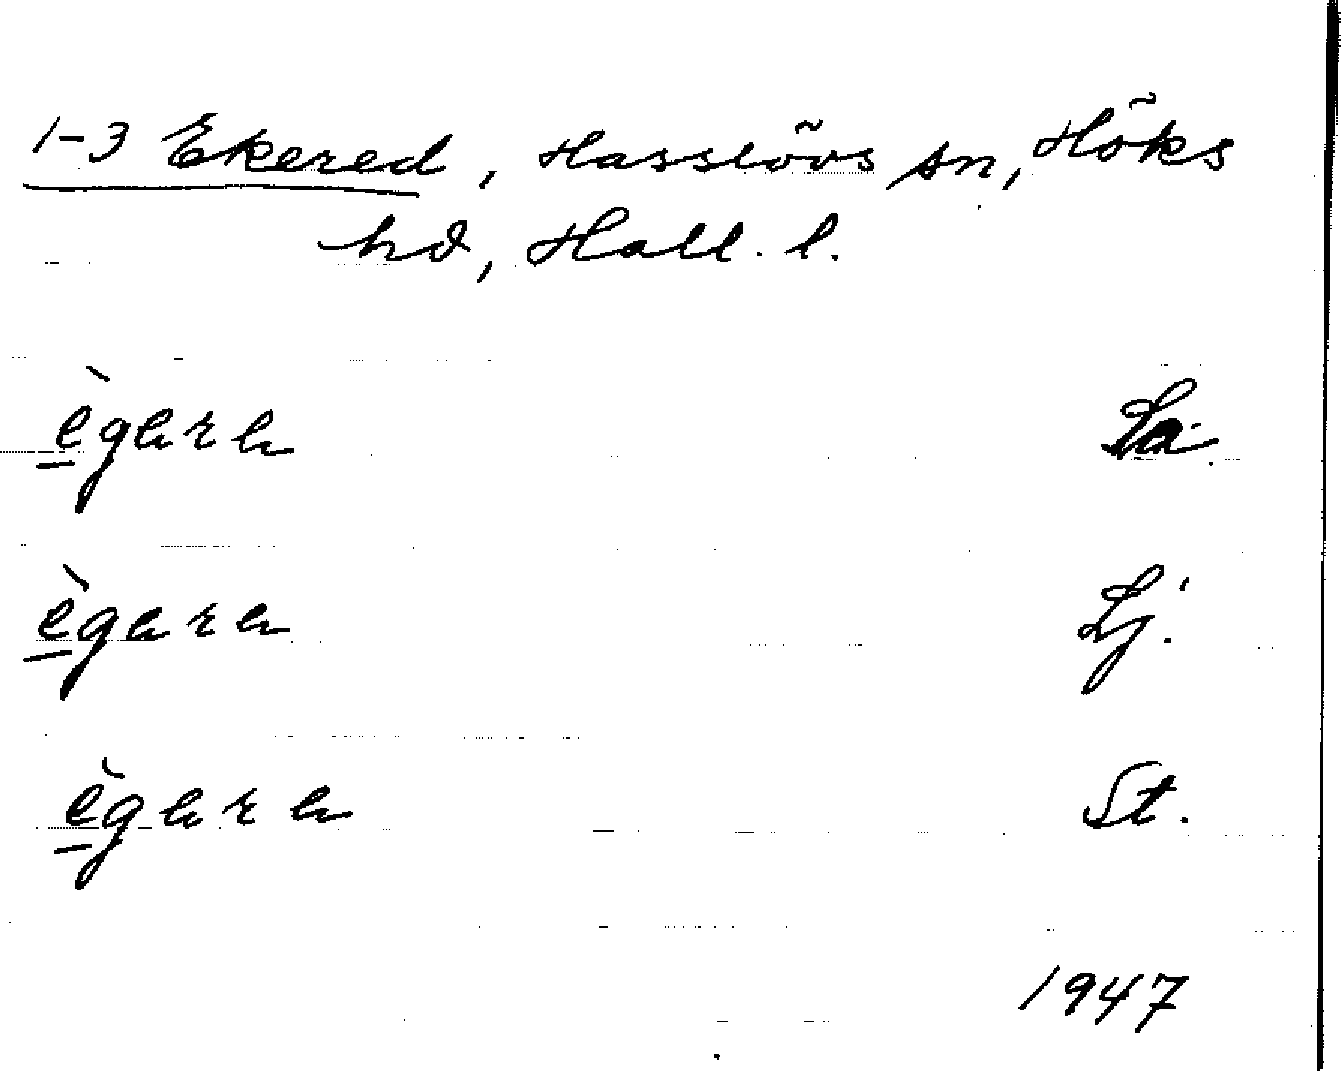 1-3 Ekered, Hasslövs sn, Höks
hd, Hall. l.
ègara La.
ègara Lj.
ègara St.
1947